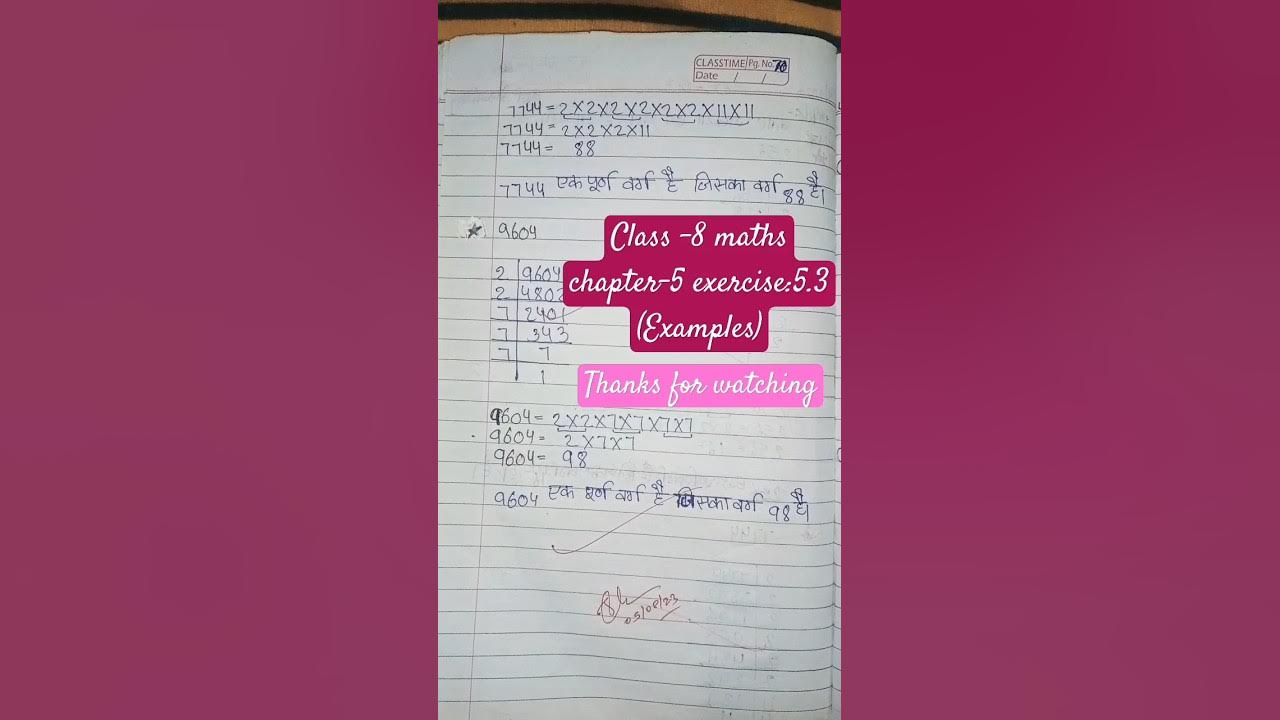 CLASSTIME Pg. No. 70
Date / /
7744 = 2×2×2×2×2×2×11×11
7744 = 2×2×2×11
7744 = 88
7744 एक पूर्ण वर्ग है जिसका वर्ग 88 है।
9604
Class -8 maths
chapter-5 exercise:5.3
(Examples)
Thanks for watching
2 9604
2 4802
7 2401
7 343
7 7
1
9604 = 2×2×7×7×7×7
9604 = 2×7×7
9604 = 98
9604 एक पूर्ण वर्ग है जिसका वर्ग 98 है।
05/08/23